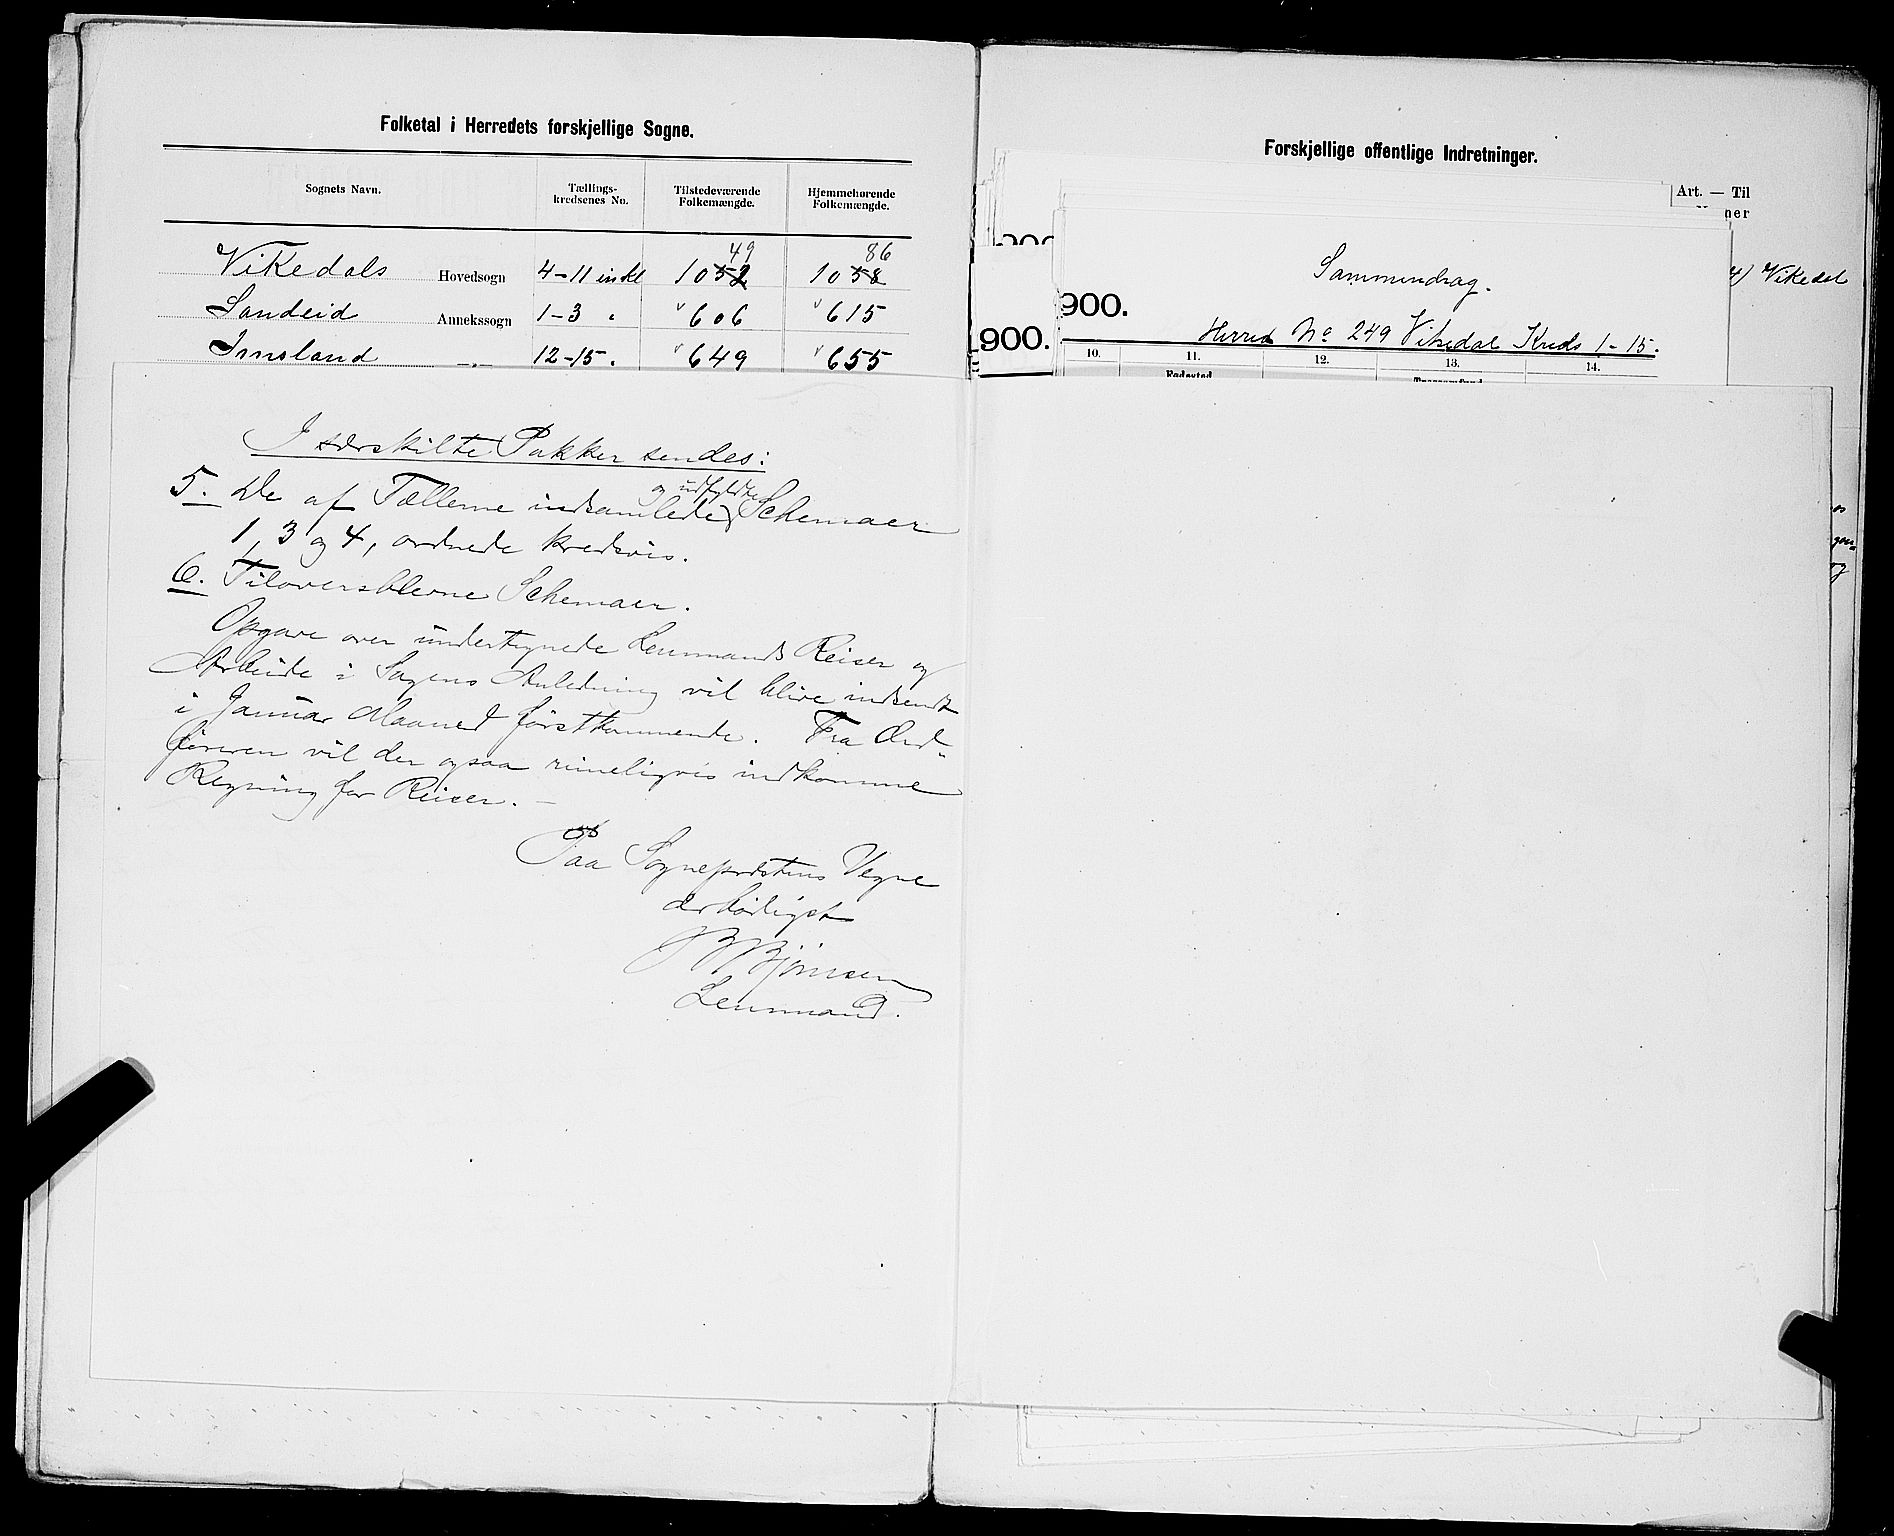 Folketal i Herredets forskjellige Sogne.
Sognets Navn. Tællings-kredsenes No. Tilstedeværende Folkemængde. Hjemmehørende Folkemængde.
49 86
Vikedals Hovedsogn 4-11 inkl 1052 1058
Sandeid Annekssogn 1-3 " 606 615
Imsland -"- 12-15 " 649 655
I særskilte Pakker sendes:
og udfyldte
5. De af Tællerne indsamlede Schemaer
1, 3 og 4, ordnede kredsvis.
6. Tiloversblevne Schemaer.
Opgave over undertegnede Lensmands Reiser og
Arbeide i Sagens Anledning vil blive indsendt
i Januar Maaned førstkommende. Fra Ord-
føreren vil der ogsaa rimeligvis indkomme
Regning for Reiser. —
Paa Sognepræstens Vegne
ærbødigst
Bjørnsen
Lensmand.
Forskjellige offentlige Indretninger.
Art. — Til
ner
4) Vikedal
900.
Sammendrag.
900.
Herred No 249 Vikedal Kreds 1-15.
900.
10. 11. 12. 13. 14.
Fødested Trossamfund
og